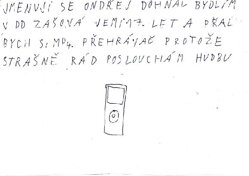 JMENUJI SE ONDŘEJ DOHNAL BYDLÍM
V DD ZAŠOVÁ JEMI 17. LET A PŘÁL
BYCH SI MP4. PŘEHRÁVAČ PROTOŽE
STRAŠNĚ RÁD POSLOUCHÁM HUDBU